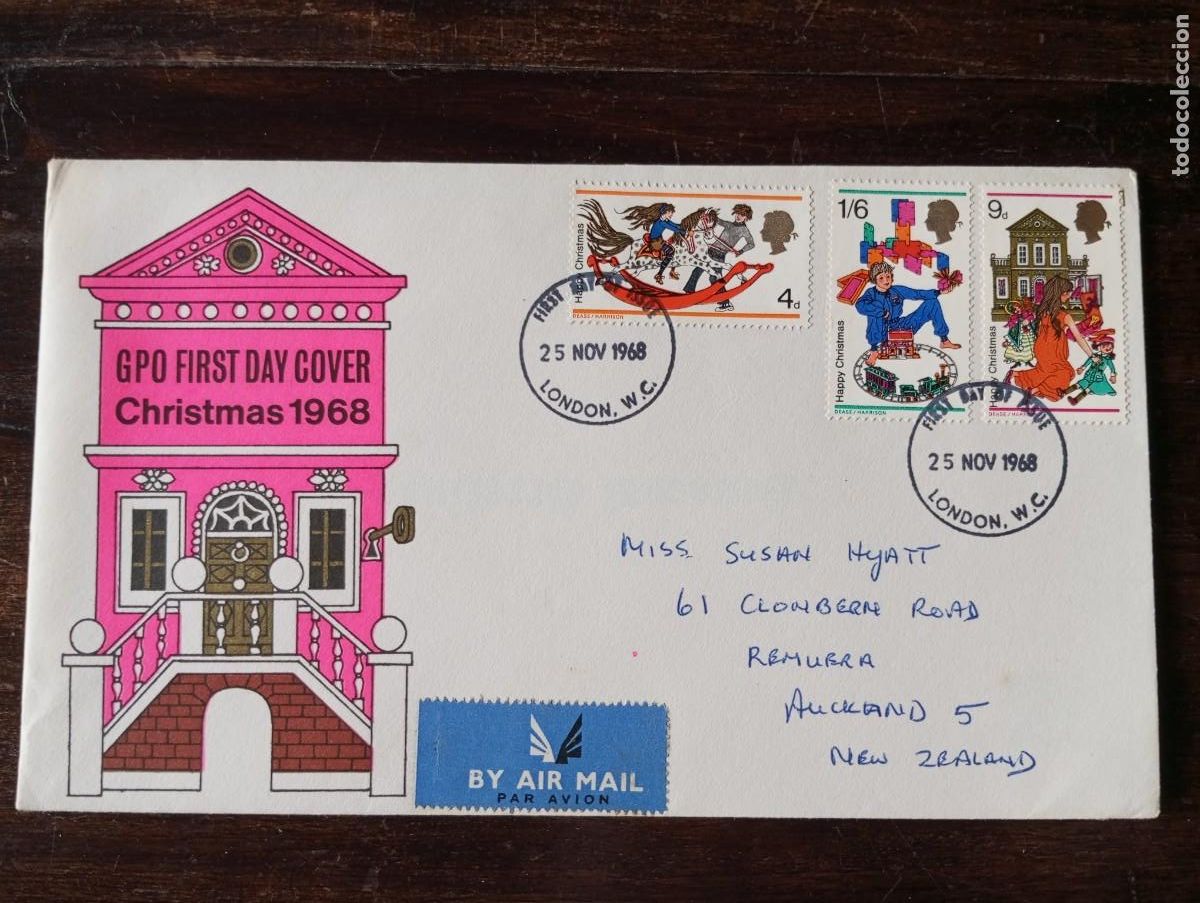 todocoleccion
GPO FIRST DAY COVER
Christmas 1968
Happy Christmas
4d
DEASE/HARRISON
1/6
Happy Christmas
DEASE/HARRISON
9d
Happy Christmas
DEASE/HARRISON
FIRST DAY OF ISSUE
25 NOV 1968
LONDON, W.C.
FIRST DAY OF ISSUE
25 NOV 1968
LONDON, W.C.
MISS SUSAN HYATT
61 CLONBERN ROAD
REMUERA
AUCKLAND 5
NEW ZEALAND
BY AIR MAIL
PAR AVION